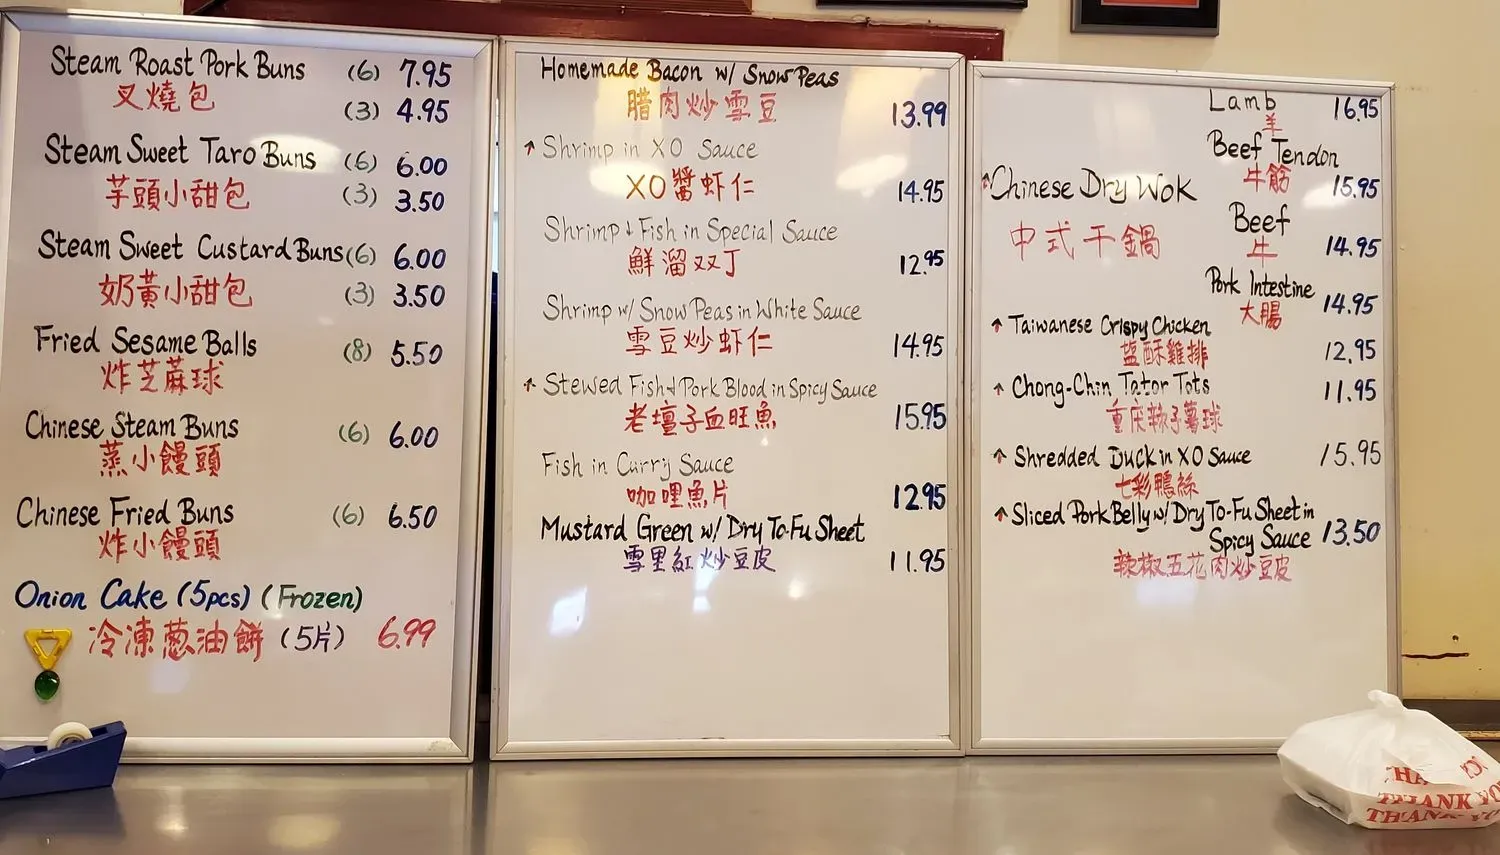 Steam Roast Pork Buns (6) 7.95
叉燒包 (3) 4.95
Steam Sweet Taro Buns (6) 6.00
芋頭小甜包 (3) 3.50
Steam Sweet Custard Buns (6) 6.00
奶黃小甜包 (3) 3.50
Fried Sesame Balls (8) 5.50
炸芝蔴球
Chinese Steam Buns (6) 6.00
蒸小饅頭
Chinese Fried Buns (6) 6.50
炸小饅頭
Onion Cake (5pcs) (Frozen)
冷凍葱油餅 (5片) 6.99
Homemade Bacon w/ Snow Peas
腊肉炒雪豆 13.99
↑ Shrimp in XO Sauce
XO醬虾仁 14.95
Shrimp & Fish in Special Sauce
鮮溜双丁 12.95
Shrimp w/ Snow Peas in White Sauce
雪豆炒虾仁 14.95
↑ Stewed Fish & Pork Blood in Spicy Sauce
老壇子血旺魚 15.95
Fish in Curry Sauce
咖哩魚片 12.95
Mustard Green w/ Dry To-Fu Sheet
雪里紅炒豆皮 11.95
↑ Chinese Dry Wok
中式干鍋
Lamb 16.95
羊
Beef Tendon
牛筋 15.95
Beef 14.95
牛
Pork Intestine 14.95
大腸
↑ Taiwanese Crispy Chicken 12.95
盐酥雞排
↑ Chong-Chin Tator Tots 11.95
重庆辣子薯球
↑ Shredded Duck in XO Sauce 15.95
七彩鴨絲
↑ Sliced Pork Belly w/ Dry To-Fu Sheet in
Spicy Sauce 13.50
辣椒五花肉炒豆皮
THANK YOU
THANK YOU